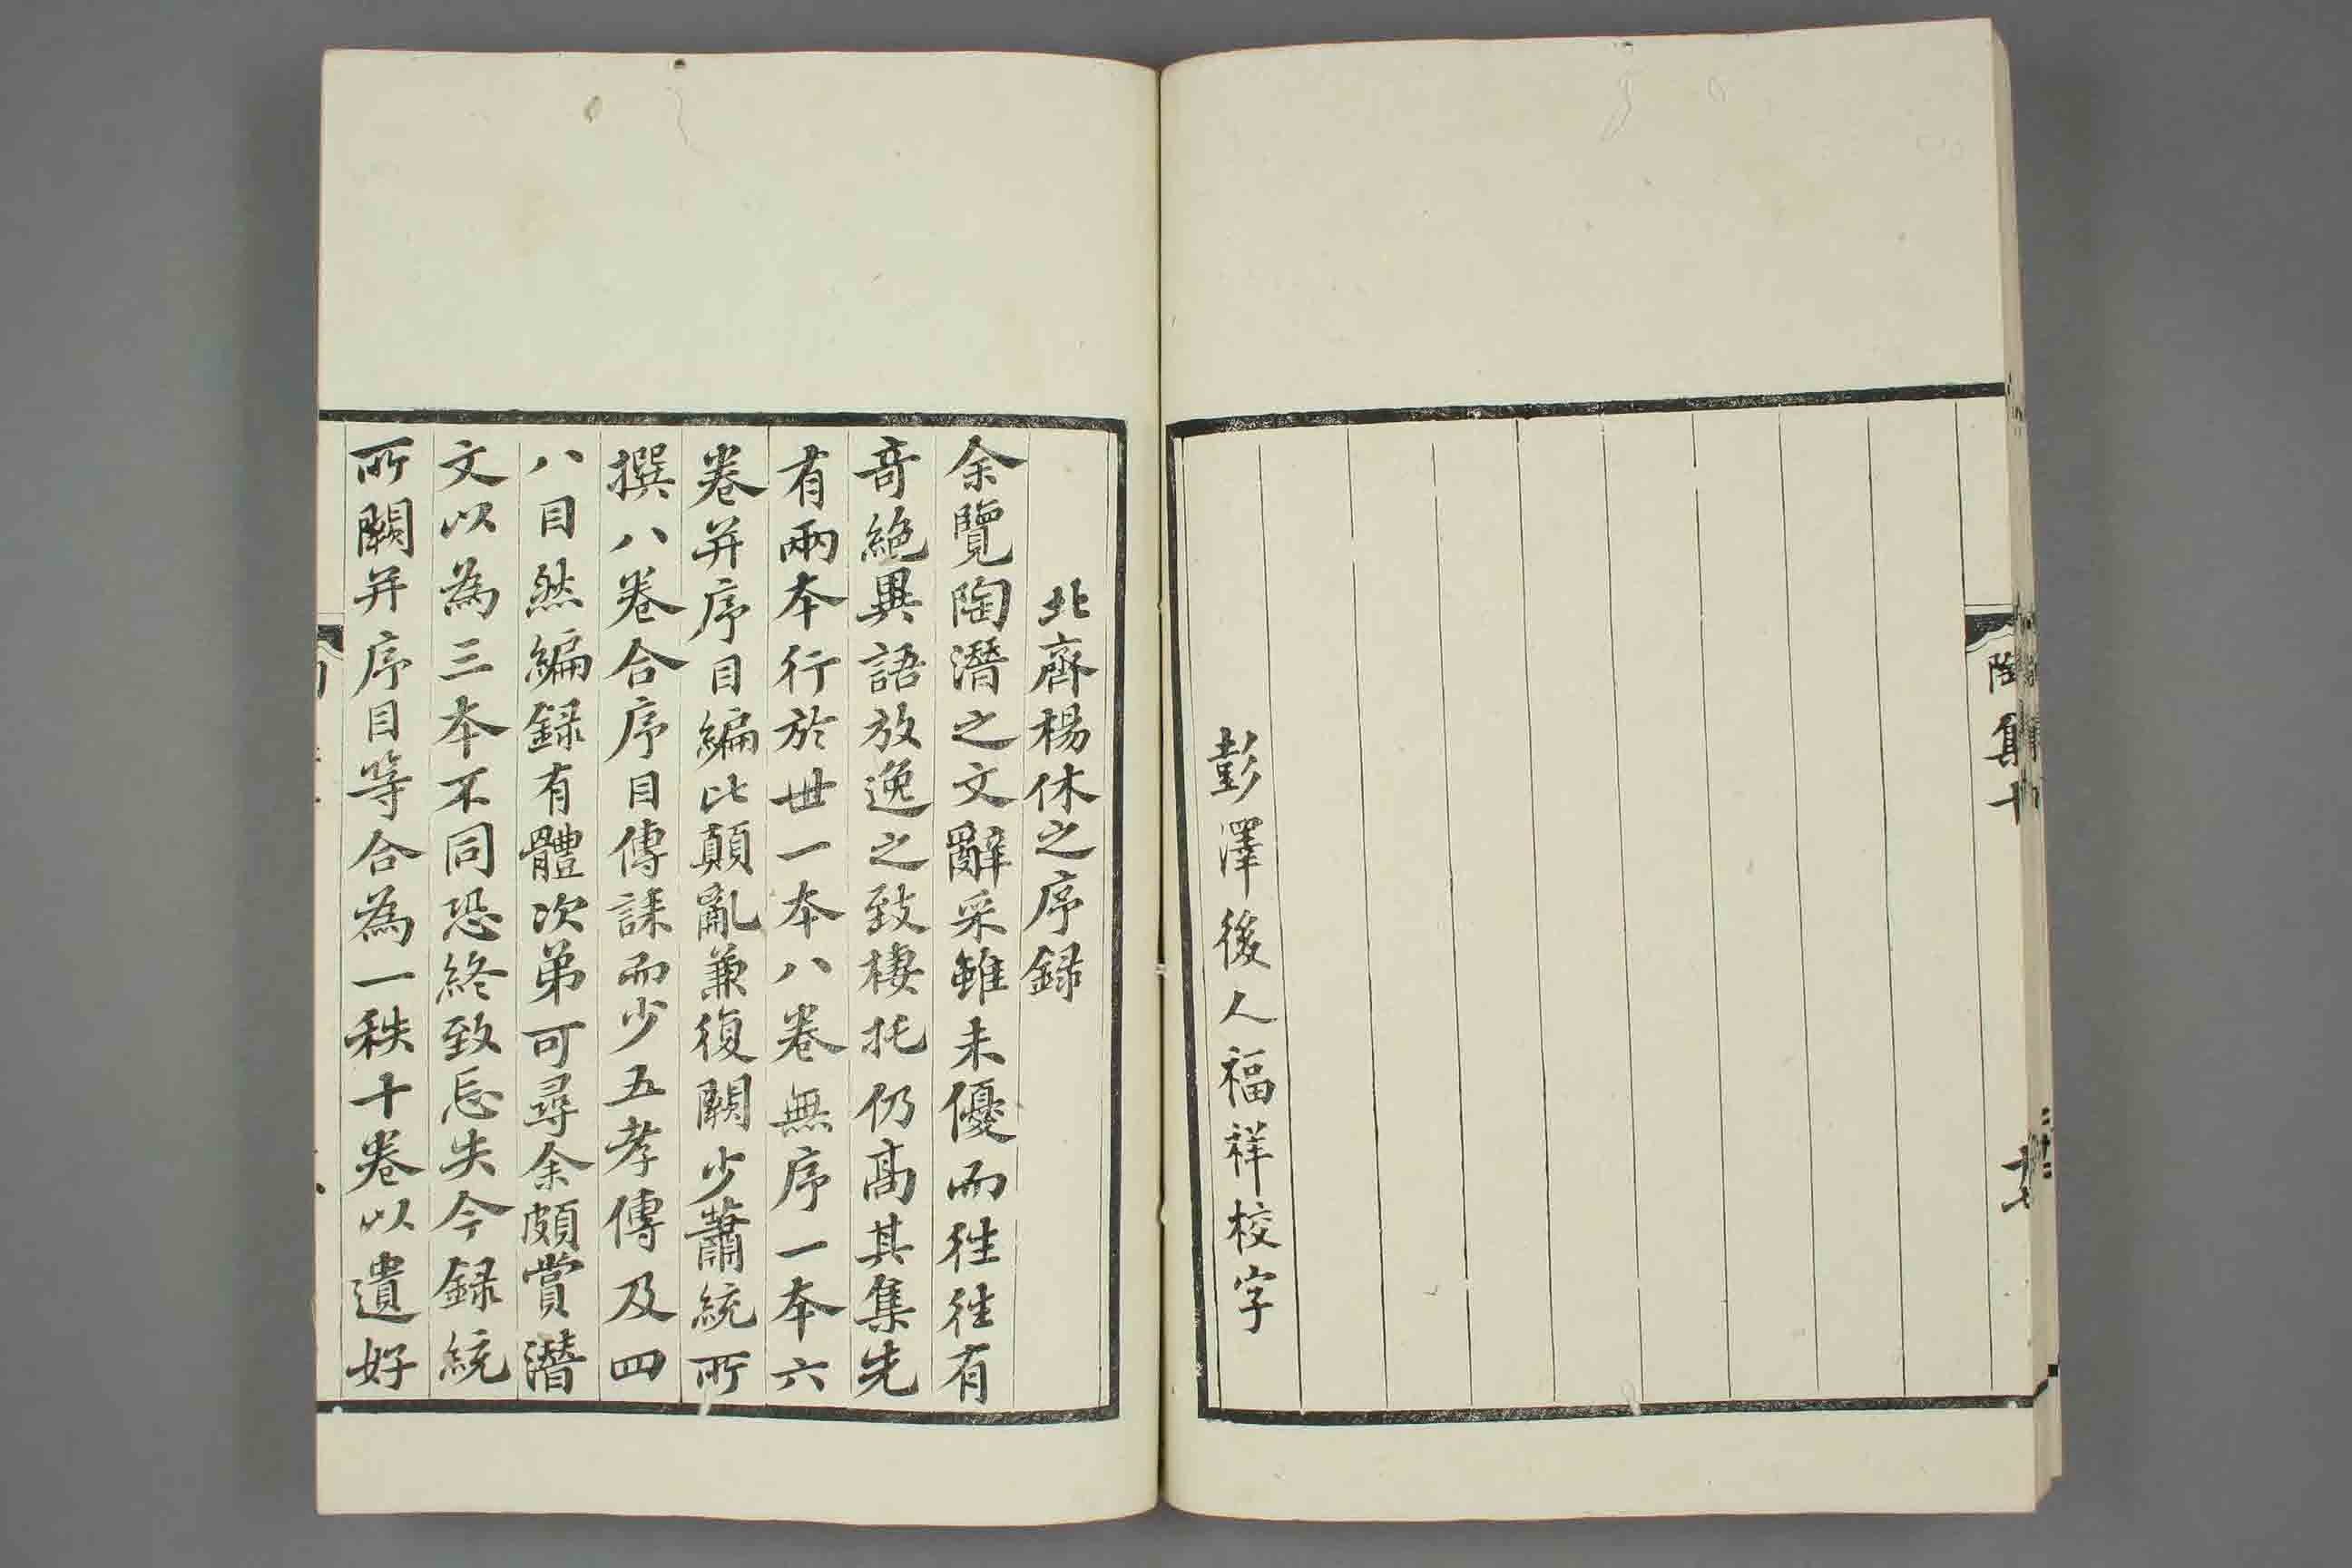 陶集十
彭澤後人福祥校字
北齊楊休之序録
余覽陶潛之文辭采雖未優而徃徃有
竒絶異語放逸之致棲托仍髙其集先
有兩本行於世一本八卷無序一本六
卷并序目編比顛亂兼復闕少蕭統所
撰八卷合序目傳誄而少五孝傳及四
八目然編録有體次弟可尋余頗賞潛
文以為三本不同恐終致忘失今録統
所闕并序目等合為一秩十卷以遺好